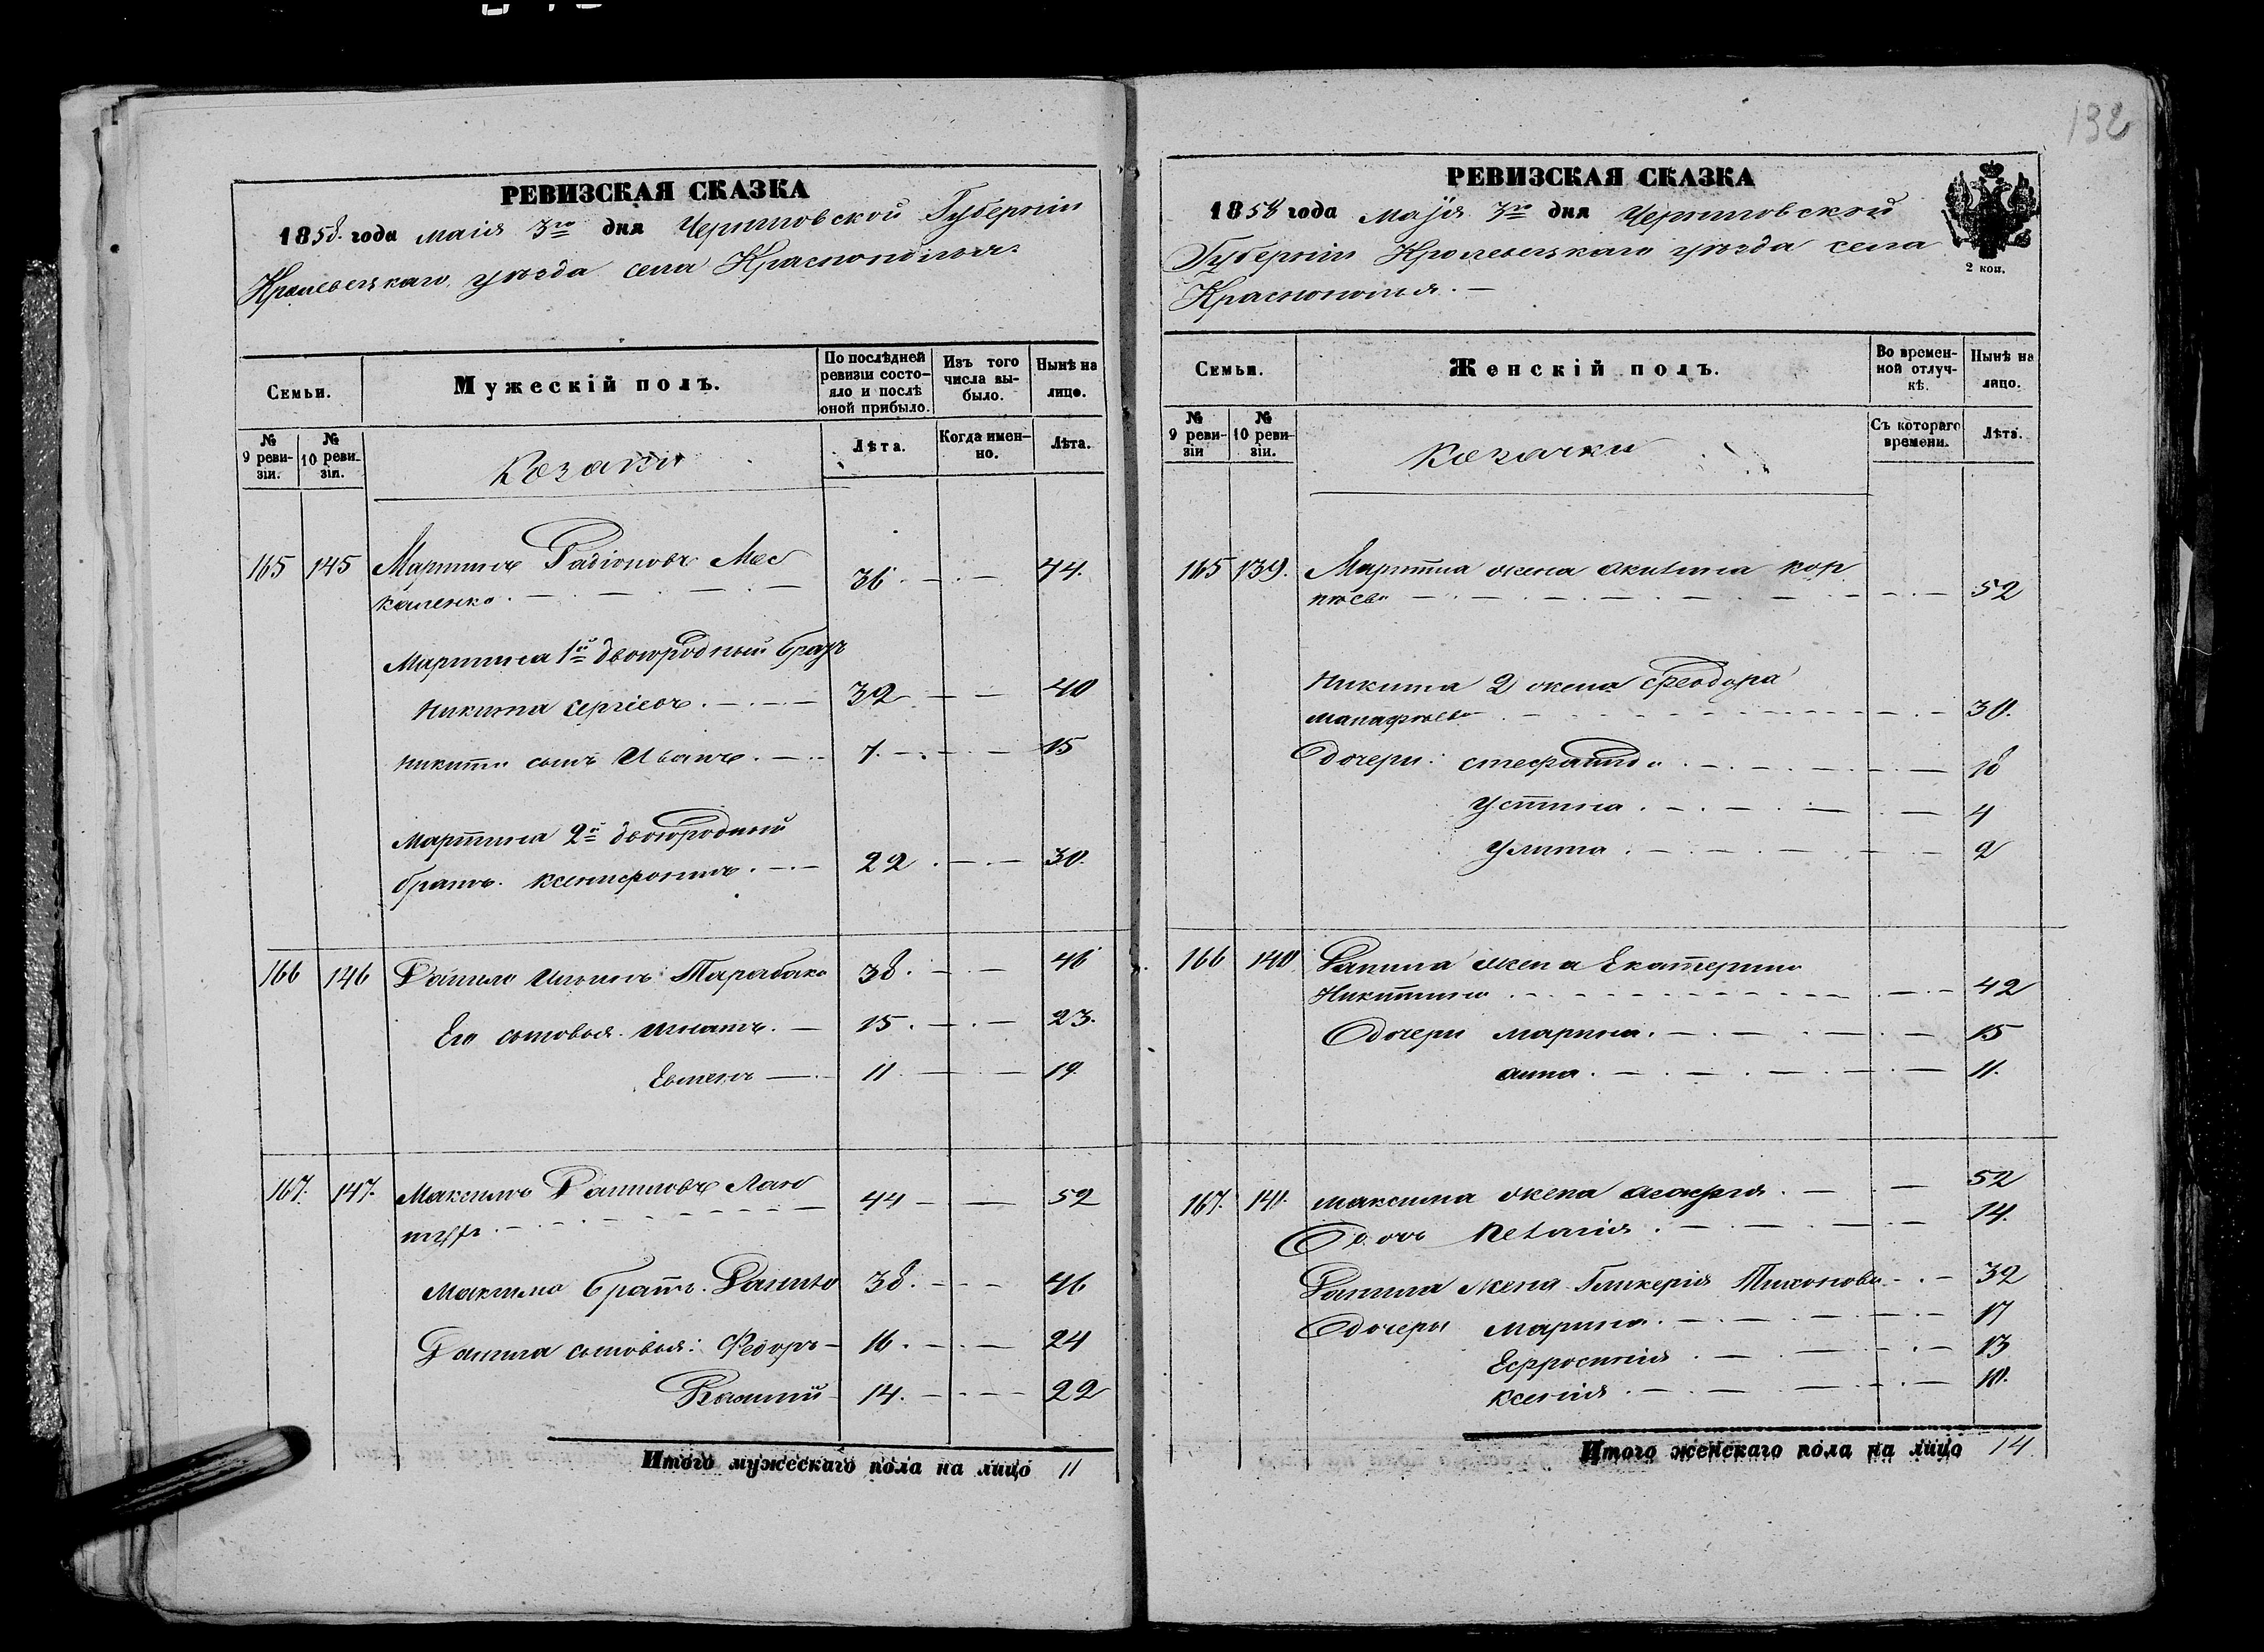 132
РЕВИЗСКАЯ СКАЗКА
1858. года маія 3го дня Черниговской Губерніи
Кролевецкаго уѣзда села Краснополья.
Семьи.
Мужескій полъ.
По послѣдней ревизіи состояло и послѣ оной прибыло.
Изъ того числа выбыло.
Нынѣ на лицо.
№ 9 ревизіи.
№ 10 ревизіи.
Козаки
Лѣта.
Когда именно.
Лѣта.
165 145 Мартинъ Радіоновъ Мос
каленко 36 44.
Мартина 1й двоюродный братъ
Никита Сергіевъ 32 40
Никиты сынъ Иванъ 7 15
Мартина 2й двоюродный
братъ Ксенофонтъ 22 30.
166 146 Данило Ильинъ Тарабака 38 46
Его сыновья Игнатъ 15 23.
Евменъ 11 19
167. 147. Максимъ Даниловъ 44 52
Максима братъ Данило 38 46
Данила сыновья: Федоръ 16 24
14 22
Итого мужескаго пола на лицо 11
РЕВИЗСКАЯ СКАЗКА
1858 года Маія 3го дня Черниговской
Губерніи Кролевецкаго уѣзда села
Краснополья.
2 коп.
Семьи.
Женскій полъ.
Во временной отлучкѣ.
Нынѣ на лицо.
№ 9 ревизіи
№ 10 ревизіи.
Козачки
Съ котораго времени.
Лѣта.
165 139. Мартина жена Акилина Кор
нѣева 52
Никита 2 жена Феодора
30.
Дочери: Стефанида 18
Устина 4
Улита 2
166 140 Данила жена Екатерина
Никитина 42
Дочери Марина 15
Анна 11.
167. 141. Максима жена Агафія 52
Дочь Пелагія 14.
Данила жена Гликерія Тихонова 32
Дочери Марина 17
Ефросинія 13
Ксенія 10.
Итого женскаго пола на лицо 14